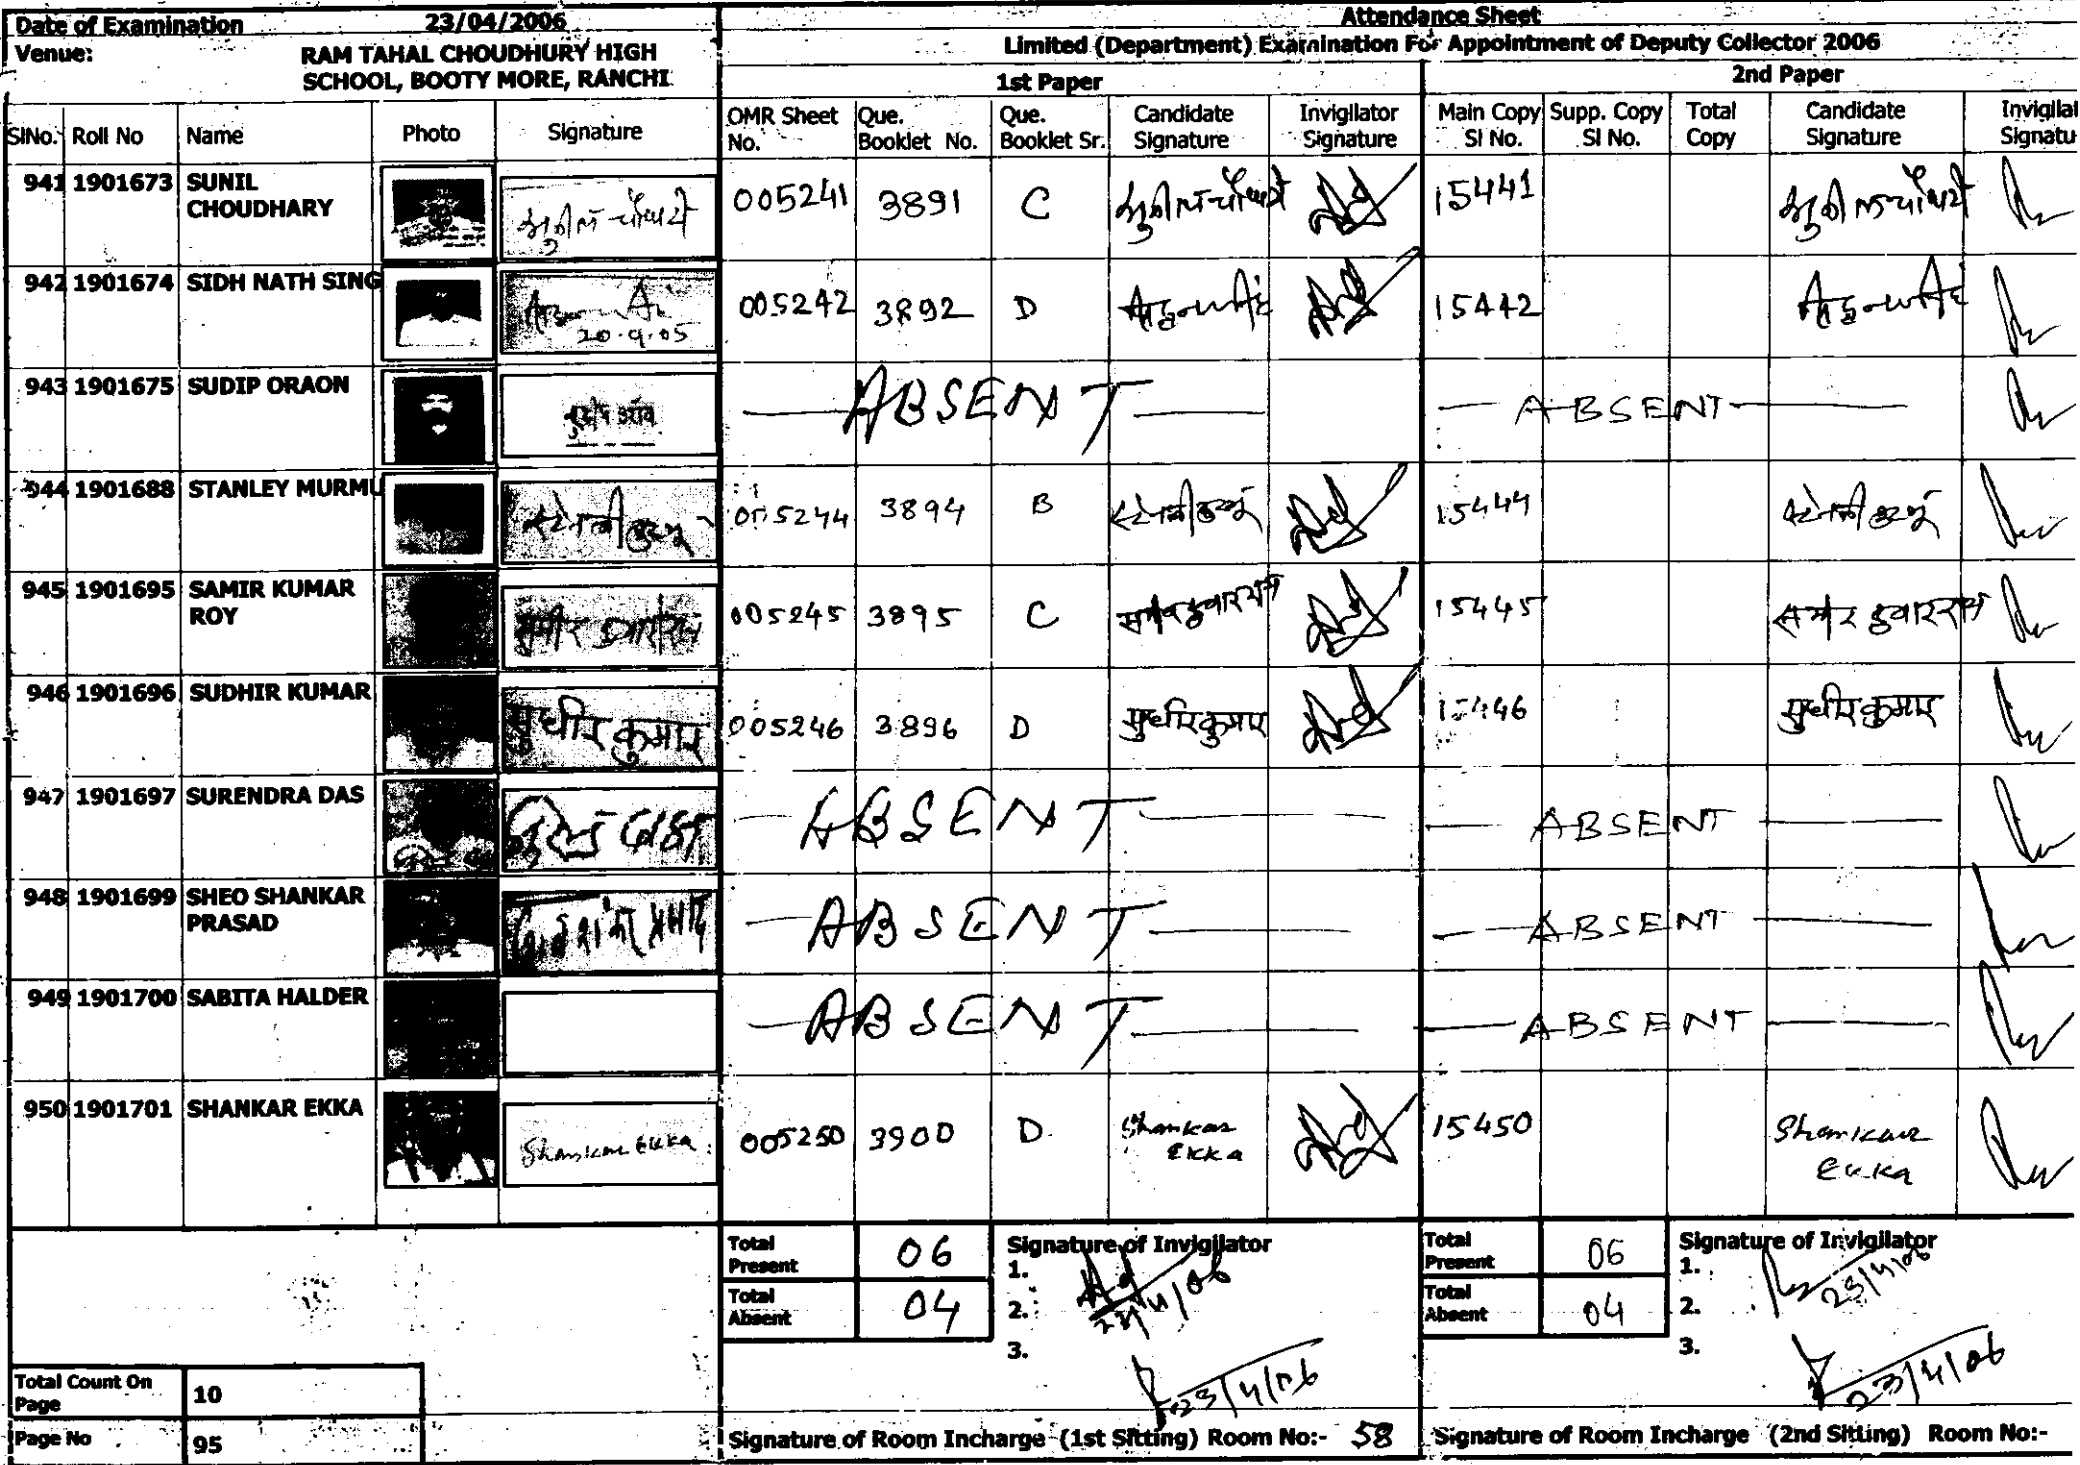 Date of Examination 23/04/2006
Venue: RAM TAHAL CHOUDHURY HIGH
SCHOOL, BOOTY MORE, RANCHI
Attendance Sheet
Limited (Department) Examination For Appointment of Deputy Collector 2006
1st Paper 2nd Paper
SlNo. Roll No Name Photo Signature OMR Sheet No. Que. Booklet No. Que. Booklet Sr. Candidate Signature Invigilator Signature Main Copy Sl No. Supp. Copy Sl No. Total Copy Candidate Signature
941 1901673 SUNIL CHOUDHARY सुनील चौधरी 005241 3891 C सुनील चौधरी 15441 सुनील चौधरी
942 1901674 SIDH NATH SING 20.9.05 005242 3892 D 15442
943 1901675 SUDIP ORAON ABSENT ABSENT
944 1901688 STANLEY MURMU 005244 3894 B 15444
945 1901695 SAMIR KUMAR ROY समीर कुमार राय 005245 3895 C समीर कुमार राय 15445 समीर कुमार राय
946 1901696 SUDHIR KUMAR सुधीर कुमार 005246 3896 D सुधीर कुमार 15446 सुधीर कुमार
947 1901697 SURENDRA DAS ABSENT ABSENT
948 1901699 SHEO SHANKAR PRASAD ABSENT ABSENT
949 1901700 SABITA HALDER ABSENT ABSENT
950 1901701 SHANKAR EKKA Shankar Ekka 005250 3900 D Shankar Ekka 15450 Shankar Ekka
Total Present 06 Signature of Invigilator Total Present 06 Signature of Invigilator
1. 1. 23/4/06
Total Absent 04 2. 23/4/06 Total Absent 04 2.
3. 3.
23/4/06 23/4/06
Total Count On Page 10
Page No 95
Signature of Room Incharge (1st Sitting) Room No:- 58 Signature of Room Incharge (2nd Sitting) Room No:-